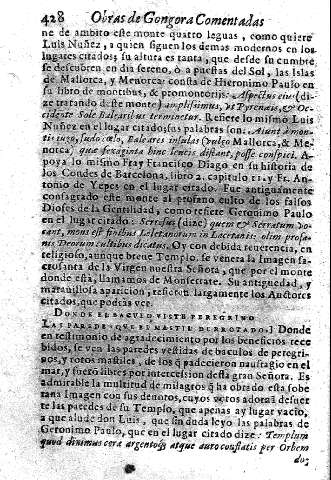 428 Obras de Gongora Comentadas
ne de ambito este monte quatro leguas, como quiere
Luis Nuñez, a quien siguen los demas modernos en los
lugares citados; su altura es tanta, que desde su cumbre
se descubren en dia sereno, ò a puestas del Sol, las Islas
de Mallorca, y Menorca; consta de Hieronimo Paulo en
su libro de montibus, & promontoriis: Aspectus eius (di-
ze tratando deste monte) amplissimus, ut Pyrenais, & Oc-
cidente Sole Balearibus terminetur. Refiere lo mismo Luis
Nuñez en el lugar citado; sus palabras son: Aiunt à mon-
tis iugo, sudo cælo, Baleares insulas (vulgo Mallorca, & Me-
norca) quæ sexaginta hinc leucis distant, posse conspici. A-
poya lo mismo Fray Francisco Diago en su historia de
los Condes de Barcelona, libro 2. capitulo 11. y Fr. Anto-
nio de Yepes en el lugar citado. Fue antiguamente
consagrado este monte al profano culto de los falsos
Dioses de la Gentilidad, como refiere Geronimo Paulo
en el lugar citado: Serratus (dize) quem & Serratum vo-
cant, mons est finibus Leletanorum in Lacetanis: olim profa-
nis Deorum cultibus dicatus. Oy con debida reuerencia, en
religioso, aunque breue Templo, se venera la Imagen sa-
crosanta de la Virgen nuestra Señora, que por el monte
donde esta, llamamos de Monserrate. Su antiguedad, y
marauillosa aparicion, refieren largamente los Auctores
citados, que podràs ver.
DONDE EL BACULO VISTIO PEREGRINO
LAS PAREDES QUE EL MASTIL DERROTADO.] Donde
en testimonio de agradecimiento por los beneficios rece
bidos, se ven las paredes vestidas de baculos de peregri-
nos, y rotos mastiles, de los q̃ padecieron naufragio en el
mar, y fuerõ libres por intercession desta gran Señora. Es
admirable la multitud de milagros q̃ ha obrado esta sobe
rana Imagen con sus deuotos, cuyos votos adornã de suer
te las paredes de su Templo, que apenas ay lugar vacio,
a que alude don Luis, que sin duda leyò las palabras de
Geronimo Paulo, que en el lugar citado dize: Templum
quod diuinum cera argentoq́; atque auro conflatis per Orbem
do;